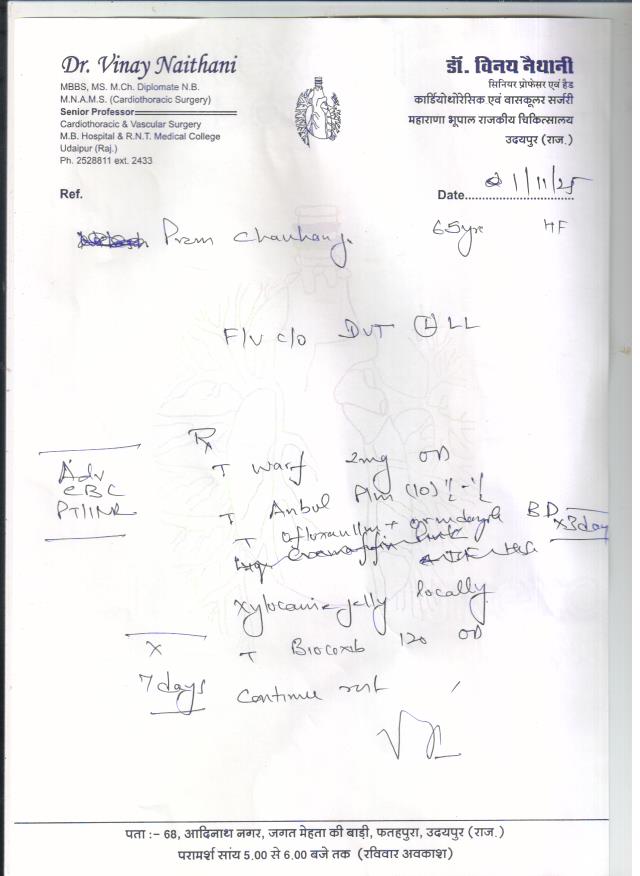 Dr. Vinay Naithani
MBBS, MS. M.Ch. Diplomate N.B.
M.N.A.M.S. (Cardiothoracic Surgery)
Senior Professor
Cardiothoracic & Vascular Surgery
M.B. Hospital & R.N.T. Medical College
Udaipur (Raj.)
Ph. 2528811 ext. 2433
डॉ. विनय नैथानी
सिनियर प्रोफेसर एवं हैड
कार्डियोथोरेसिक एवं वासकूलर सर्जरी
महाराणा भूपाल राजकीय चिकित्सालय
उदयपुर (राज.)
Ref.
Date 1/11/25
Prem Chauhan 65yrs
F/U c/o DVT (L) LL
Adv
CBC
PT/INR
Rx
T Warf 2mg OD
T
T BD x3day
Xylocaine jelly locally
T 120 OD
x
7days
Continue rest
पता :– 68, आदिनाथ नगर, जगत मेहता की बाड़ी, फतहपुरा, उदयपुर (राज.)
परामर्श सांय 5.00 से 6.00 बजे तक (रविवार अवकाश)